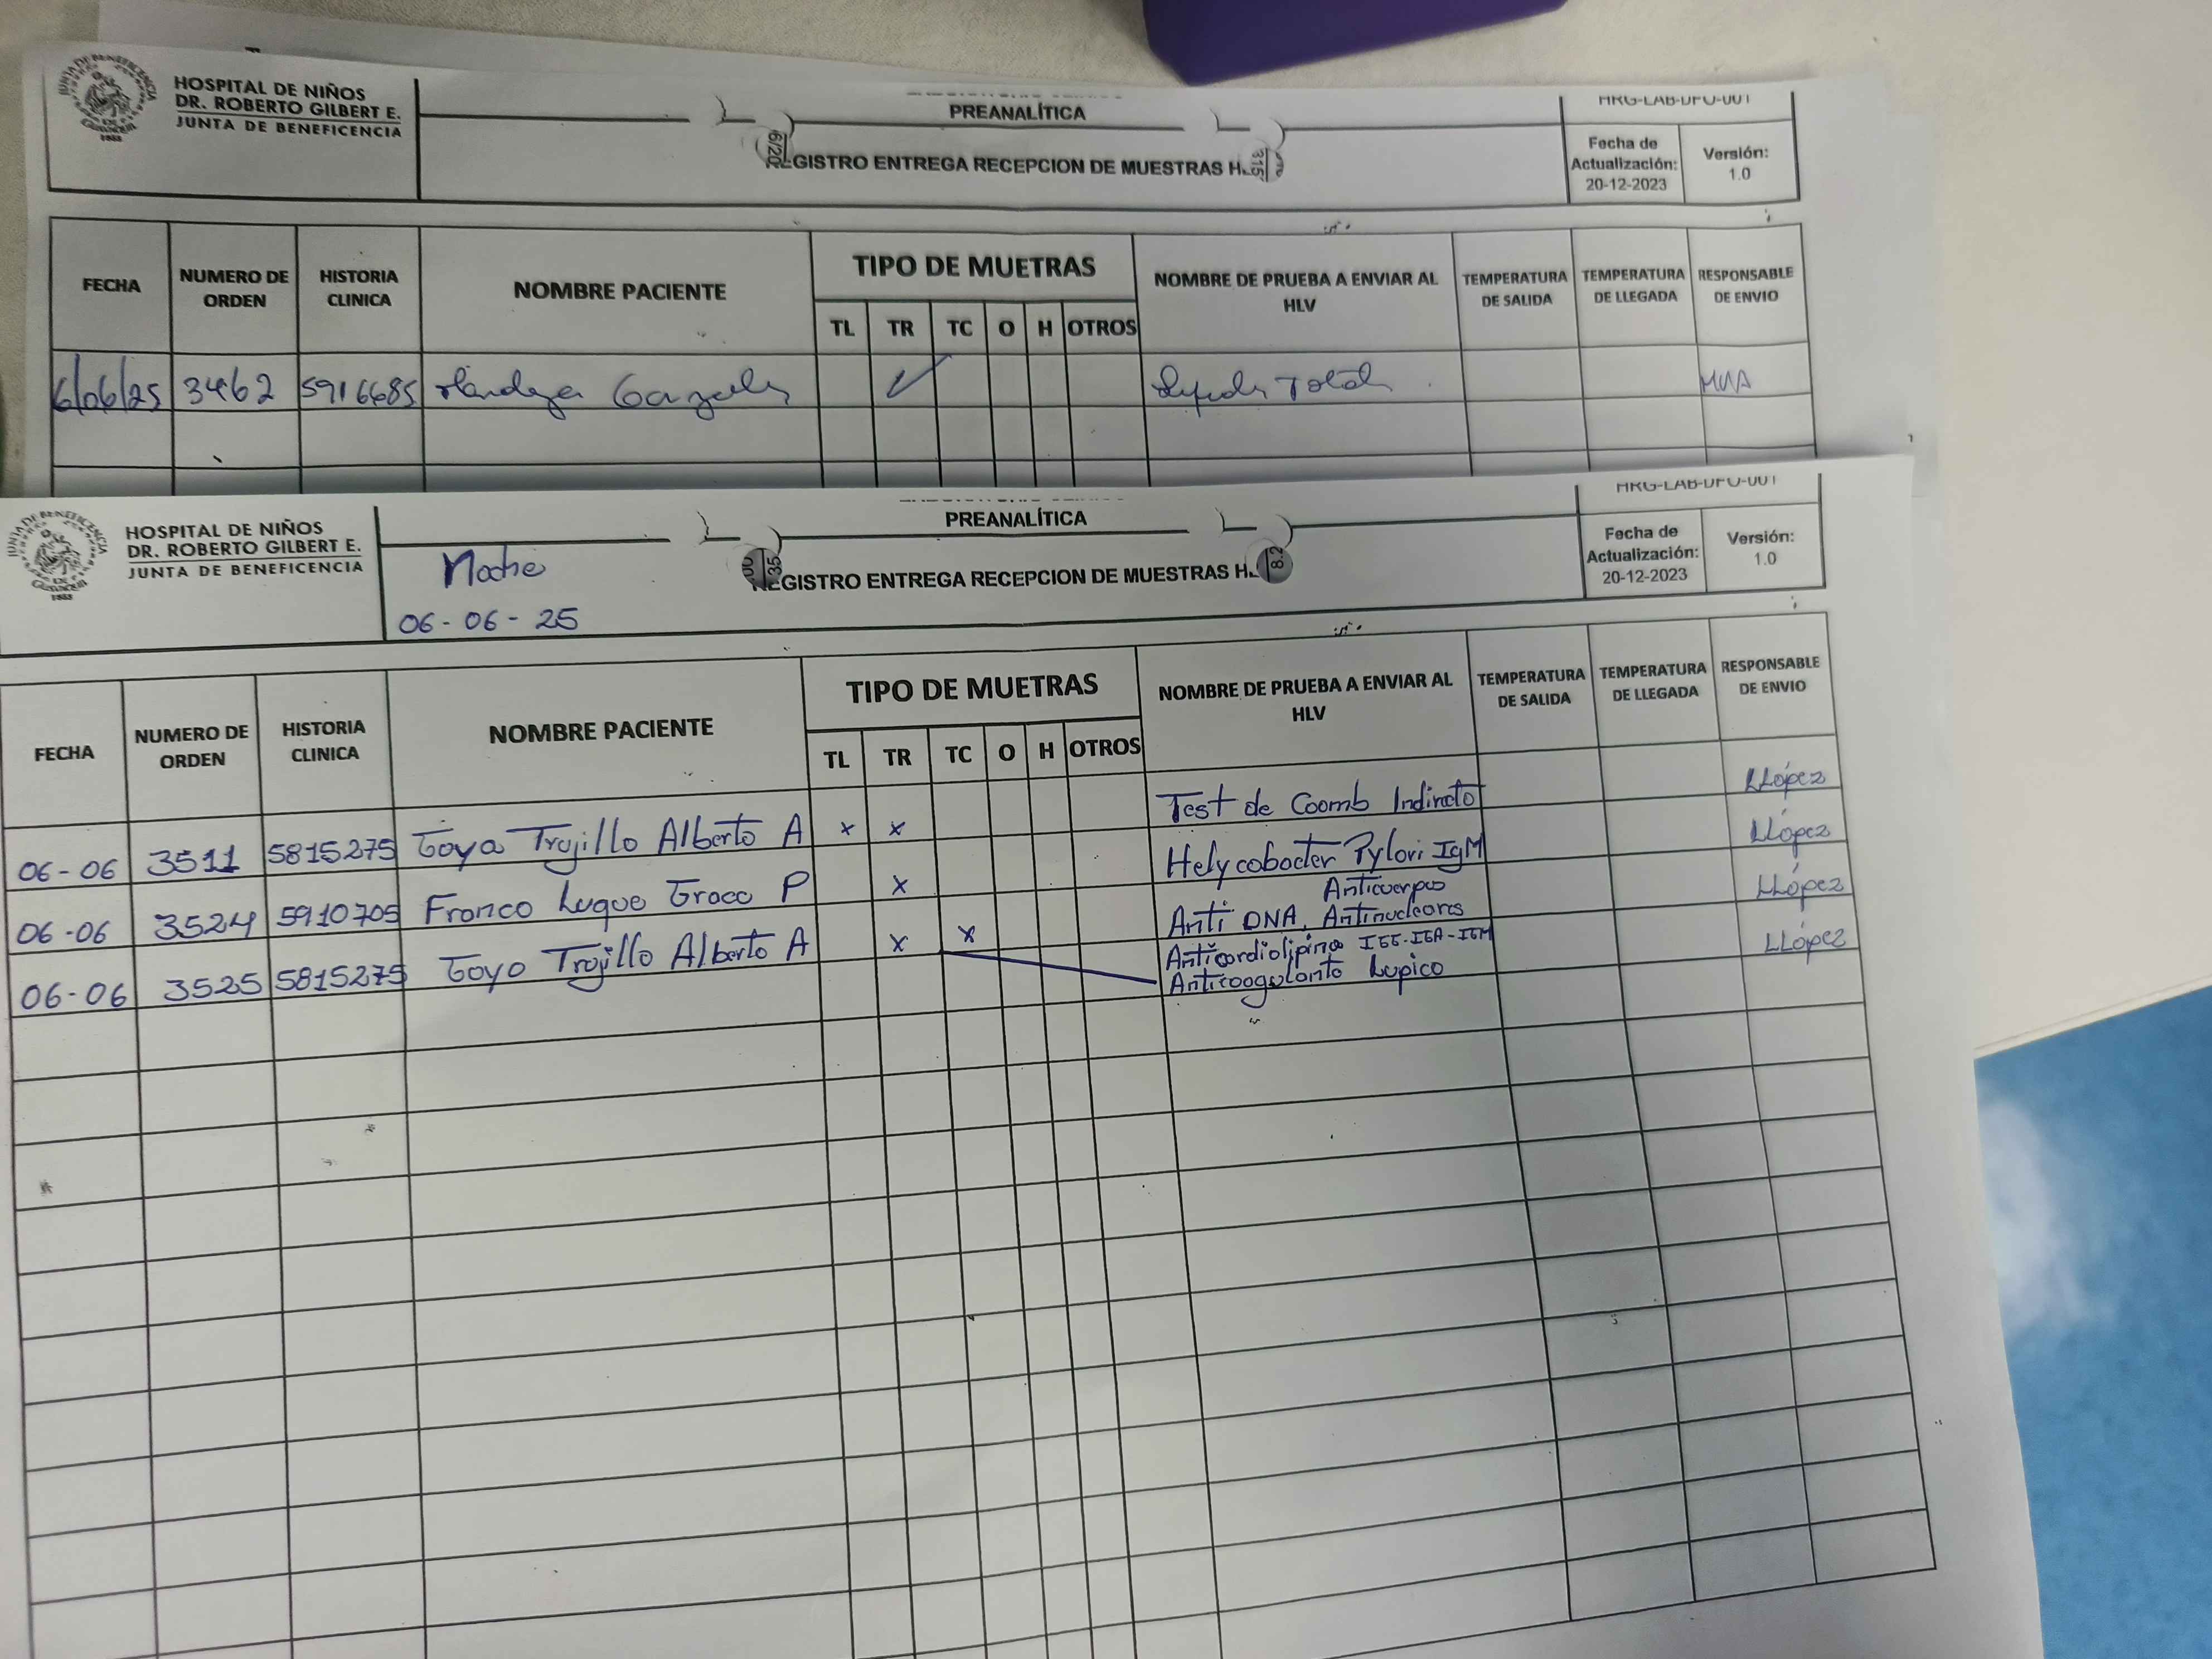 JUNTA DE BENEFICENCIA DE GUAYAQUIL 1888
HOSPITAL DE NIÑOS
DR. ROBERTO GILBERT E.
JUNTA DE BENEFICENCIA
PREANALÍTICA
REGISTRO ENTREGA RECEPCION DE MUESTRAS
HRG-LAB-DFO-001
Fecha de
Actualización:
20-12-2023
Versión:
1.0
FECHA
NUMERO DE
ORDEN
HISTORIA
CLINICA
NOMBRE PACIENTE
TIPO DE MUETRAS
TL TR TC O H OTROS
NOMBRE DE PRUEBA A ENVIAR AL
HLV
TEMPERATURA
DE SALIDA
TEMPERATURA
DE LLEGADA
RESPONSABLE
DE ENVIO
6/06/25 3462 5916685
HOSPITAL DE NIÑOS
DR. ROBERTO GILBERT E.
JUNTA DE BENEFICENCIA
Noche
06-06-25
PREANALÍTICA
REGISTRO ENTREGA RECEPCION DE MUESTRAS
HRG-LAB-DFO-001
Fecha de
Actualización:
20-12-2023
Versión:
1.0
FECHA
NUMERO DE
ORDEN
HISTORIA
CLINICA
NOMBRE PACIENTE
TIPO DE MUETRAS
TL TR TC O H OTROS
NOMBRE DE PRUEBA A ENVIAR AL
HLV
TEMPERATURA
DE SALIDA
TEMPERATURA
DE LLEGADA
RESPONSABLE
DE ENVIO
06-06 3511 5815275 Goya Trujillo Alberto A x x Test de Coomb Indirecto LLópez
06-06 3524 5910705 Franco Luque Grace P x Helycobacter Pylori IgM LLópez
06-06 3525 5815275 Goya Trujillo Alberto A x x Anti DNA, Anticuerpos Antinucleares LLópez
Anticardiolipina IGG-IGA-IGM LLópez
Anticoagulante Lupico